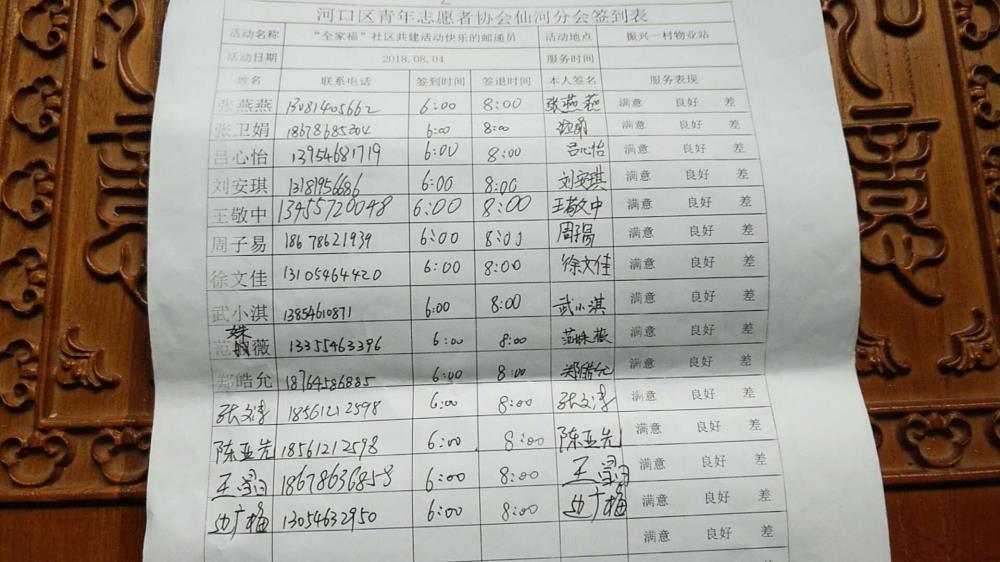 河口区青年志愿者协会仙河分会签到表
活动名称 “全家福”社区共建活动快乐的邮递员 活动地点 振兴一村物业站
活动时间 2018.08.04 服务时间
姓名 联系电话 签到时间 签退时间 本人签名 服务表现
张燕燕 13081405662 6:00 8:00 张燕燕 满意 良好 差
张卫娟 18678685204 6:00 8:00 满意 良好 差
吕心怡 13954681719 6:00 8:00 吕心怡 满意 良好 差
刘安琪 13181956686 6:00 8:00 刘安琪 满意 良好 差
王敬中 13455720048 6:00 8:00 王敬中 满意 良好 差
周子易 18678621939 6:00 8:00 周子易 满意 良好 差
徐文佳 13105464420 6:00 8:00 徐文佳 满意 良好 差
武小淇 13854610871 6:00 8:00 武小淇 满意 良好 差
范姝薇 13355463396 6:00 8:00 范姝薇 满意 良好 差
郑皓允 18764586885 6:00 8:00 郑皓允 满意 良好 差
张文涛 18561212598 6:00 8:00 张文涛 满意 良好 差
陈亚先 18561212598 6:00 8:00 陈亚先 满意 良好 差
王 18678636858 6:00 8:00 王 满意 良好 差
边广梅 13054632950 6:00 8:00 边广梅 满意 良好 差
满意 良好 差